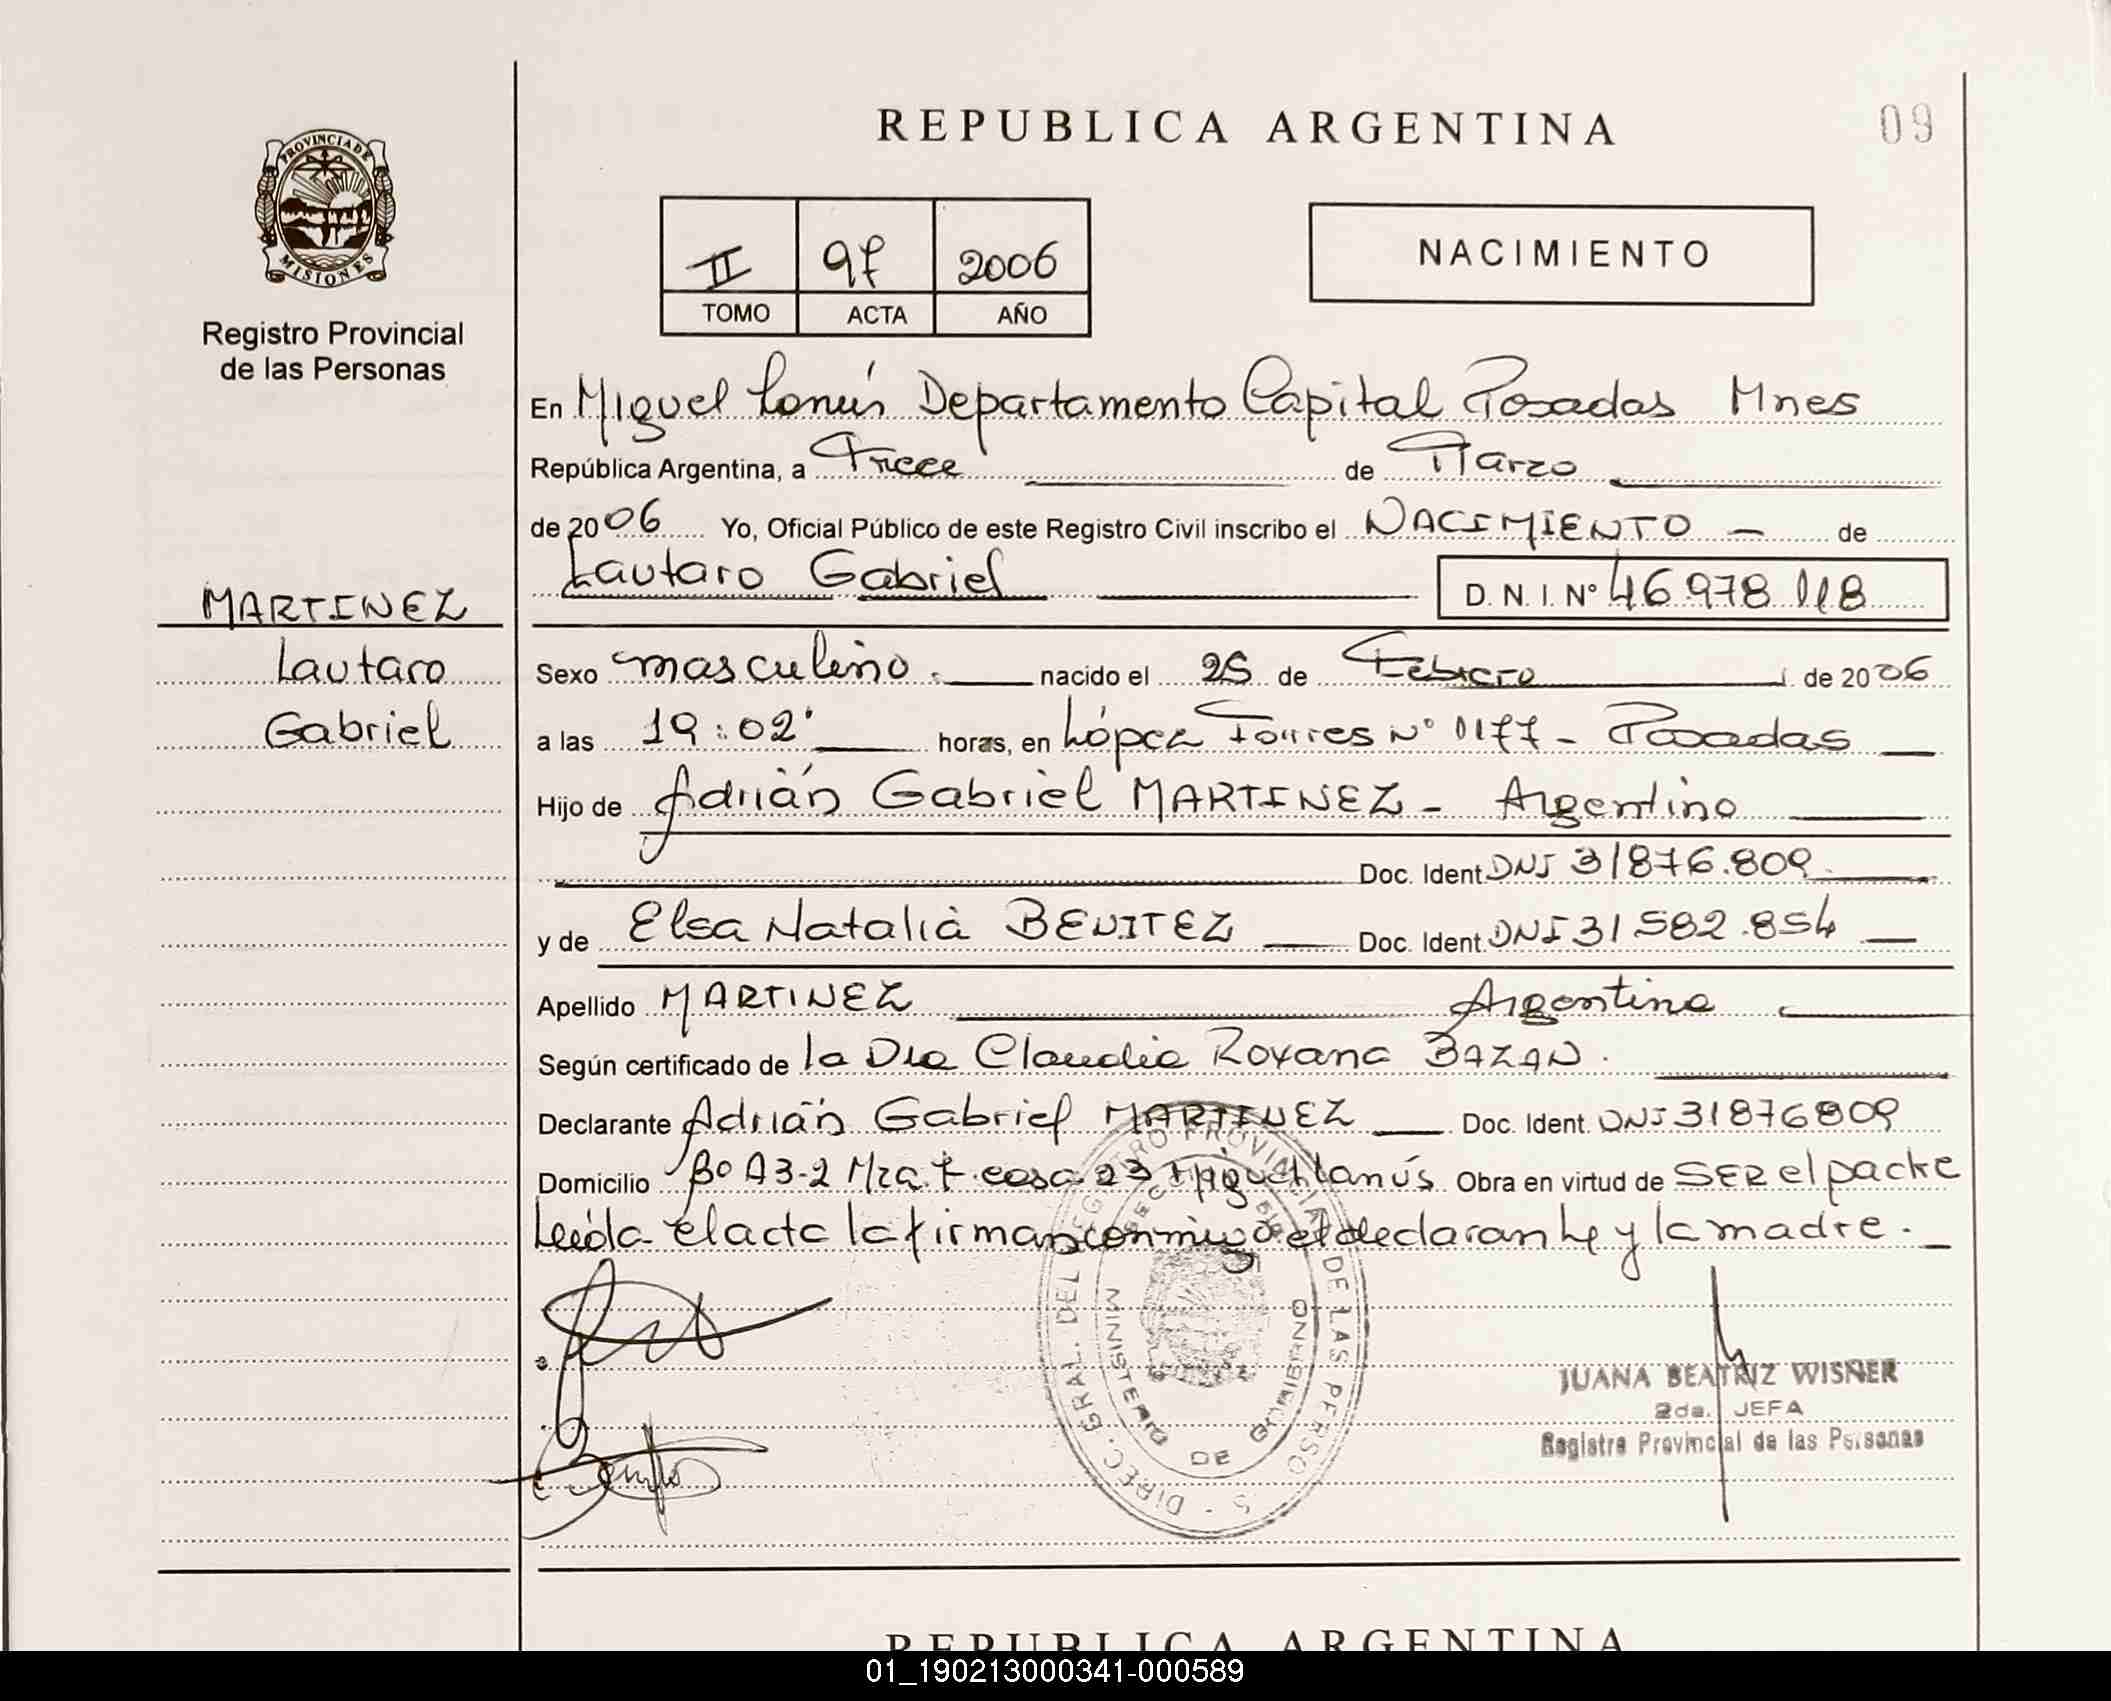 REPUBLICA ARGENTINA
09
PROVINCIA DE
MISIONES
Registro Provincial
de las Personas
II 97 2006
TOMO ACTA AÑO
NACIMIENTO
En Miguel Lanús Departamento Capital Posadas Mnes
República Argentina, a Trece de Marzo
de 2006 Yo, Oficial Público de este Registro Civil inscribo el NACIMIENTO – de
Lautaro Gabriel D. N. I. N° 46.978.118
MARTINEZ
Lautaro
Gabriel
Sexo masculino nacido el 25 de Febrero de 2006
a las 19:02' horas, en López Torres N° 1177 - Posadas
Hijo de Adrián Gabriel MARTINEZ - Argentino
Doc. Ident. DNI 31876.809
y de Elsa Natalia BENITEZ Doc. Ident. DNI 31.582.854
Apellido MARTINEZ Argentina
Según certificado de la Dra Claudia Roxana BAZAN.
Declarante Adrián Gabriel MARTINEZ Doc. Ident. DNI 31876809
Domicilio Bo A3-2 Mza. 7 casa 23 Miguel Lanús Obra en virtud de SER el padre
Leída el acta la firman conmigo el declarante y la madre.
DIREC. GRAL. DEL REGISTRO PROVINCIAL DE LAS PERSONAS
MINISTERIO DE GOBIERNO
JUANA BEATRIZ WISNER
2da. JEFA
Registro Provincial de las Personas
REPUBLICA ARGENTINA
01_190213000341-000589